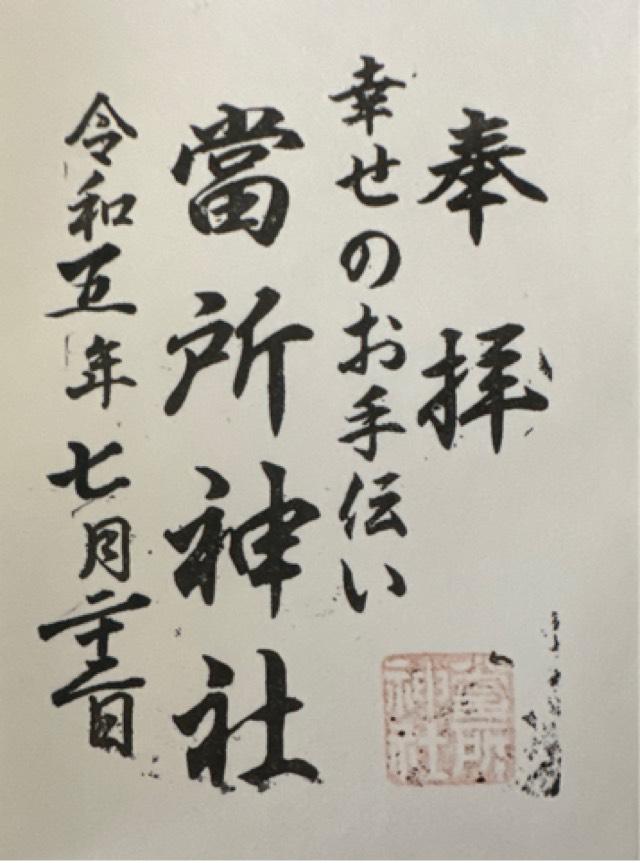 奉拝
幸せのお手伝い
當所神社
令和五年七月二十二日
當所
神社